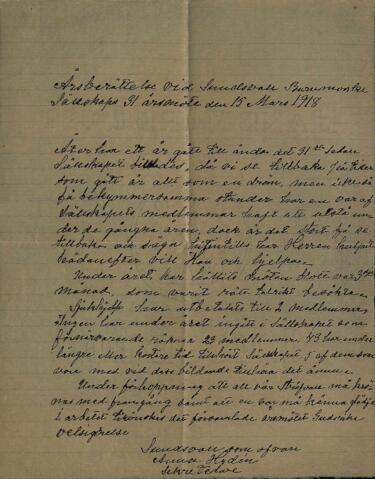 Årsberättelse vid Sundsvall
Sällskaps 31 årsmöte den 15 Mars 1918
Åter har ett år gått till ända det 31 sta sedan
Sällskapet bildades, då vi se tillbaka
som gått är allt som en dröm, men
få bekymmersamma stunder har en var af
Sällskapets medlemmar haft att utstå un-
der de gångna åren, dock är det stort få se
tillbaka och säga hittintills har Herren hulpit
hädanefter vill Han och hjelpa.
Under året har hållits möten hvar 3 dje
månad, som varit rätt talrikt besökta.
Sjukhjelp har utbetalats till 2 medlemmar
Ingen har under året ingått i Sällskapet som
för närvarande räknar 23 medlemmar, 43 har under
längre eller kortare tid tillhört Sällskapet 5 af dem som
voro med vid dess bildande tillhöra det ännu.
Under förhoppning att all vår sträfvan må krö-
nas med framgång samt att en var må känna glädje
i arbetet tillönskas det församlade årsmötet Guds rika
velsignelse
Sundsvall som ofvan
Hydén
Sekreterare